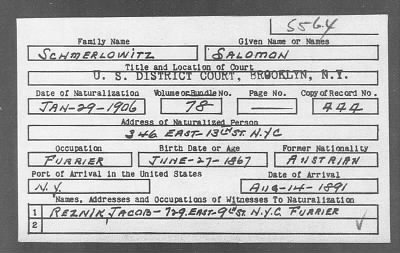 S564
Family Name Given Name or Names
SCHMERLOWITZ SALOMON
Title and Location of Court
U. S. DISTRICT COURT, BROOKLYN, N.Y.
Date of Naturalization Volume or Bundle No. Page No. Copy of Record No.
JAN-29-1906 78 — 444
Address of Naturalized Person
346 EAST-13th ST. N.Y.C
Occupation Birth Date or Age Former Nationality
FURRIER JUNE-27-1867 AUSTRIAN
Port of Arrival in the United States Date of Arrival
N.Y. AUG-14-1891
Names, Addresses and Occupations of Witnesses To Naturalization
1 REZNIK, JACOB-729.EAST-9th ST. N.Y.C. FURRIER
2